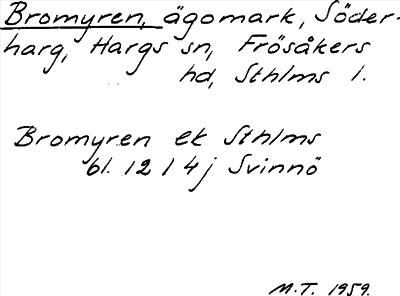 Bromyren, ägomark, Söder-
harg, Hargs sn, Frösåkers
hd, Sthlms l.
Bromyren ek Sthlms
bl. 12 I 4j Svinnö
M.T. 1959.